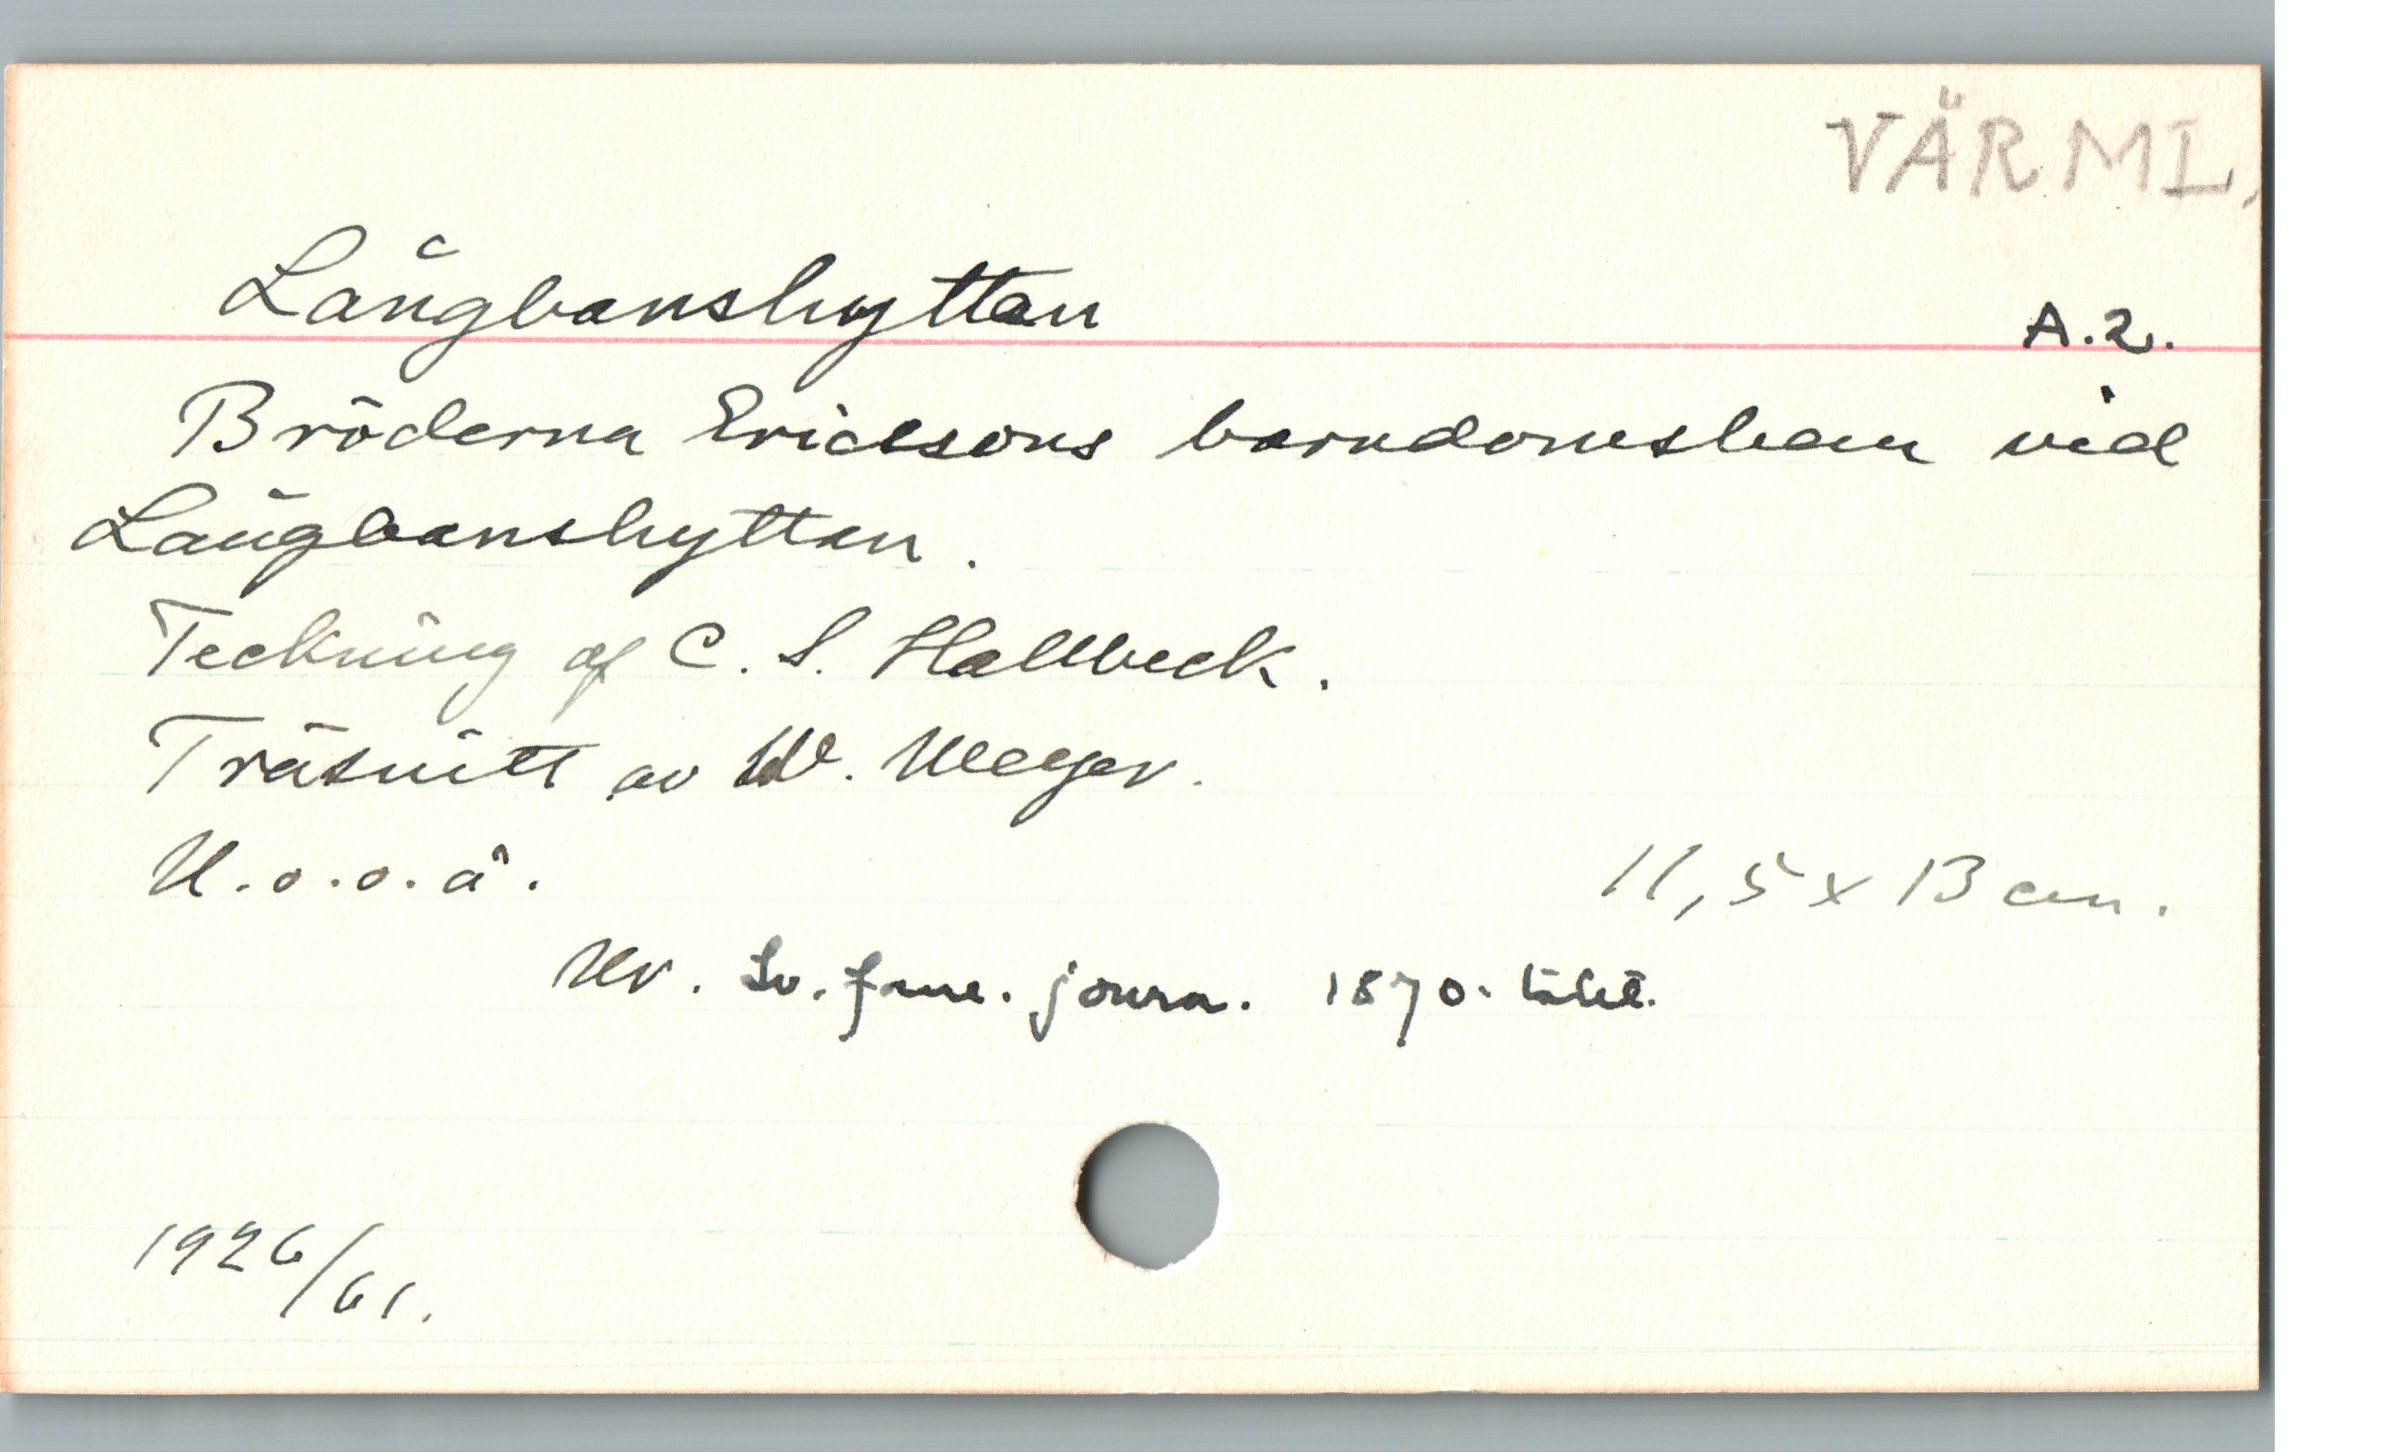 VÄRML.
Långbanshyttan
A.2.
Bröderna Ericssons barndomshem vid
Långbanshyttan.
Teckning af C. S. Hallbeck.
Träsnitt av W. Meyer.
U.o.o.å.
11,5 x 13 cm.
Ur. Sv. fam. journ. 1870-talet.
1926/61.